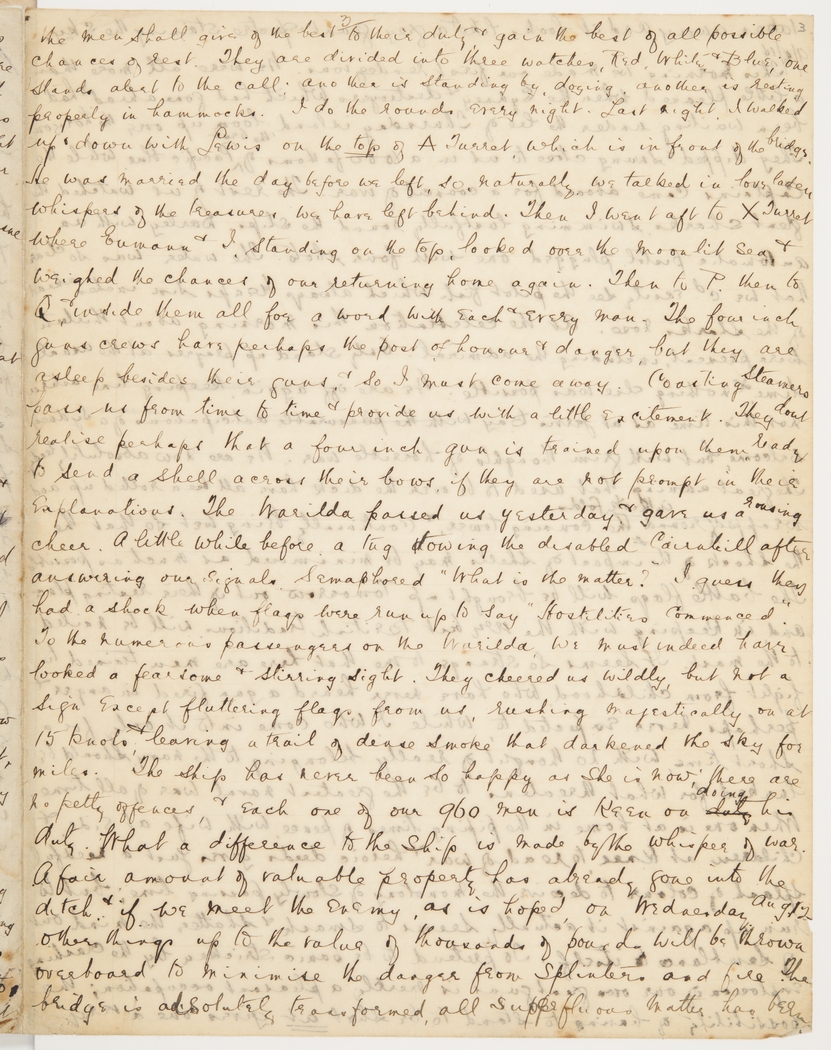 3/
3
the men shall give of the best to their duty, & gain the best of all possible
chances of rest. They are divided into three watches, Red, White, & Blue; one
stands alert to the call; another is standing by, dozing, another is resting
properly in hammocks. I do the rounds every night. Last night, I walked
up & down with Lewis on the top of A Turret, which is in front of the bridge.
He was married the day before we left, so, naturally, we talked in love laden
whispers of the treasures we have left behind. Then I went aft to X Turret
where & I, standing on the top, looked over the moonlit sea, &
weighed the chances of our returning home again. Then to P. then to
Q, & inside them all for a word with each & every man. The four inch
guns crews have perhaps the post of honour & danger, but they are
asleep besides their guns, & so I must come away. Coasting Steamers
pass us from time to time & provide us with a little excitement. They dont
realise perhaps that a four inch gun is trained upon them, ready
to send a shell across their bows if they are not prompt in their
explanations. The Warilda passed us yesterday, & gave us a rousing
cheer. A little while before, a tug towing the disabled Cairnhill after
answering our signals Semaphored "What is the matter?" I guess they
had a shock when flags were run up to say "Hostilities Commenced".
To the numerous passengers on the Warilda, we must indeed have
looked a fearsome & stirring sight. They cheered us wildly, but not a
sign except fluttering flags, from us, rushing majestically on at
15 knots, & leaving a trail of dense smoke that darkened the sky for
miles. The ship has never been so happy as she is now; there are
no petty offences, & each one of our 960 men is keen on doing his
duty. What a difference to the ship is made by the whisper of war.
A fair amount of valuable property has already gone into the
ditch, & if we meet the Enemy, as is hoped, on Wednesday Aug 12
other things up to the value of thousands of pounds will be thrown
overboard to minimise the danger from splinters and fire. The
bridge is absolutely transformed, all superfluous matter has been